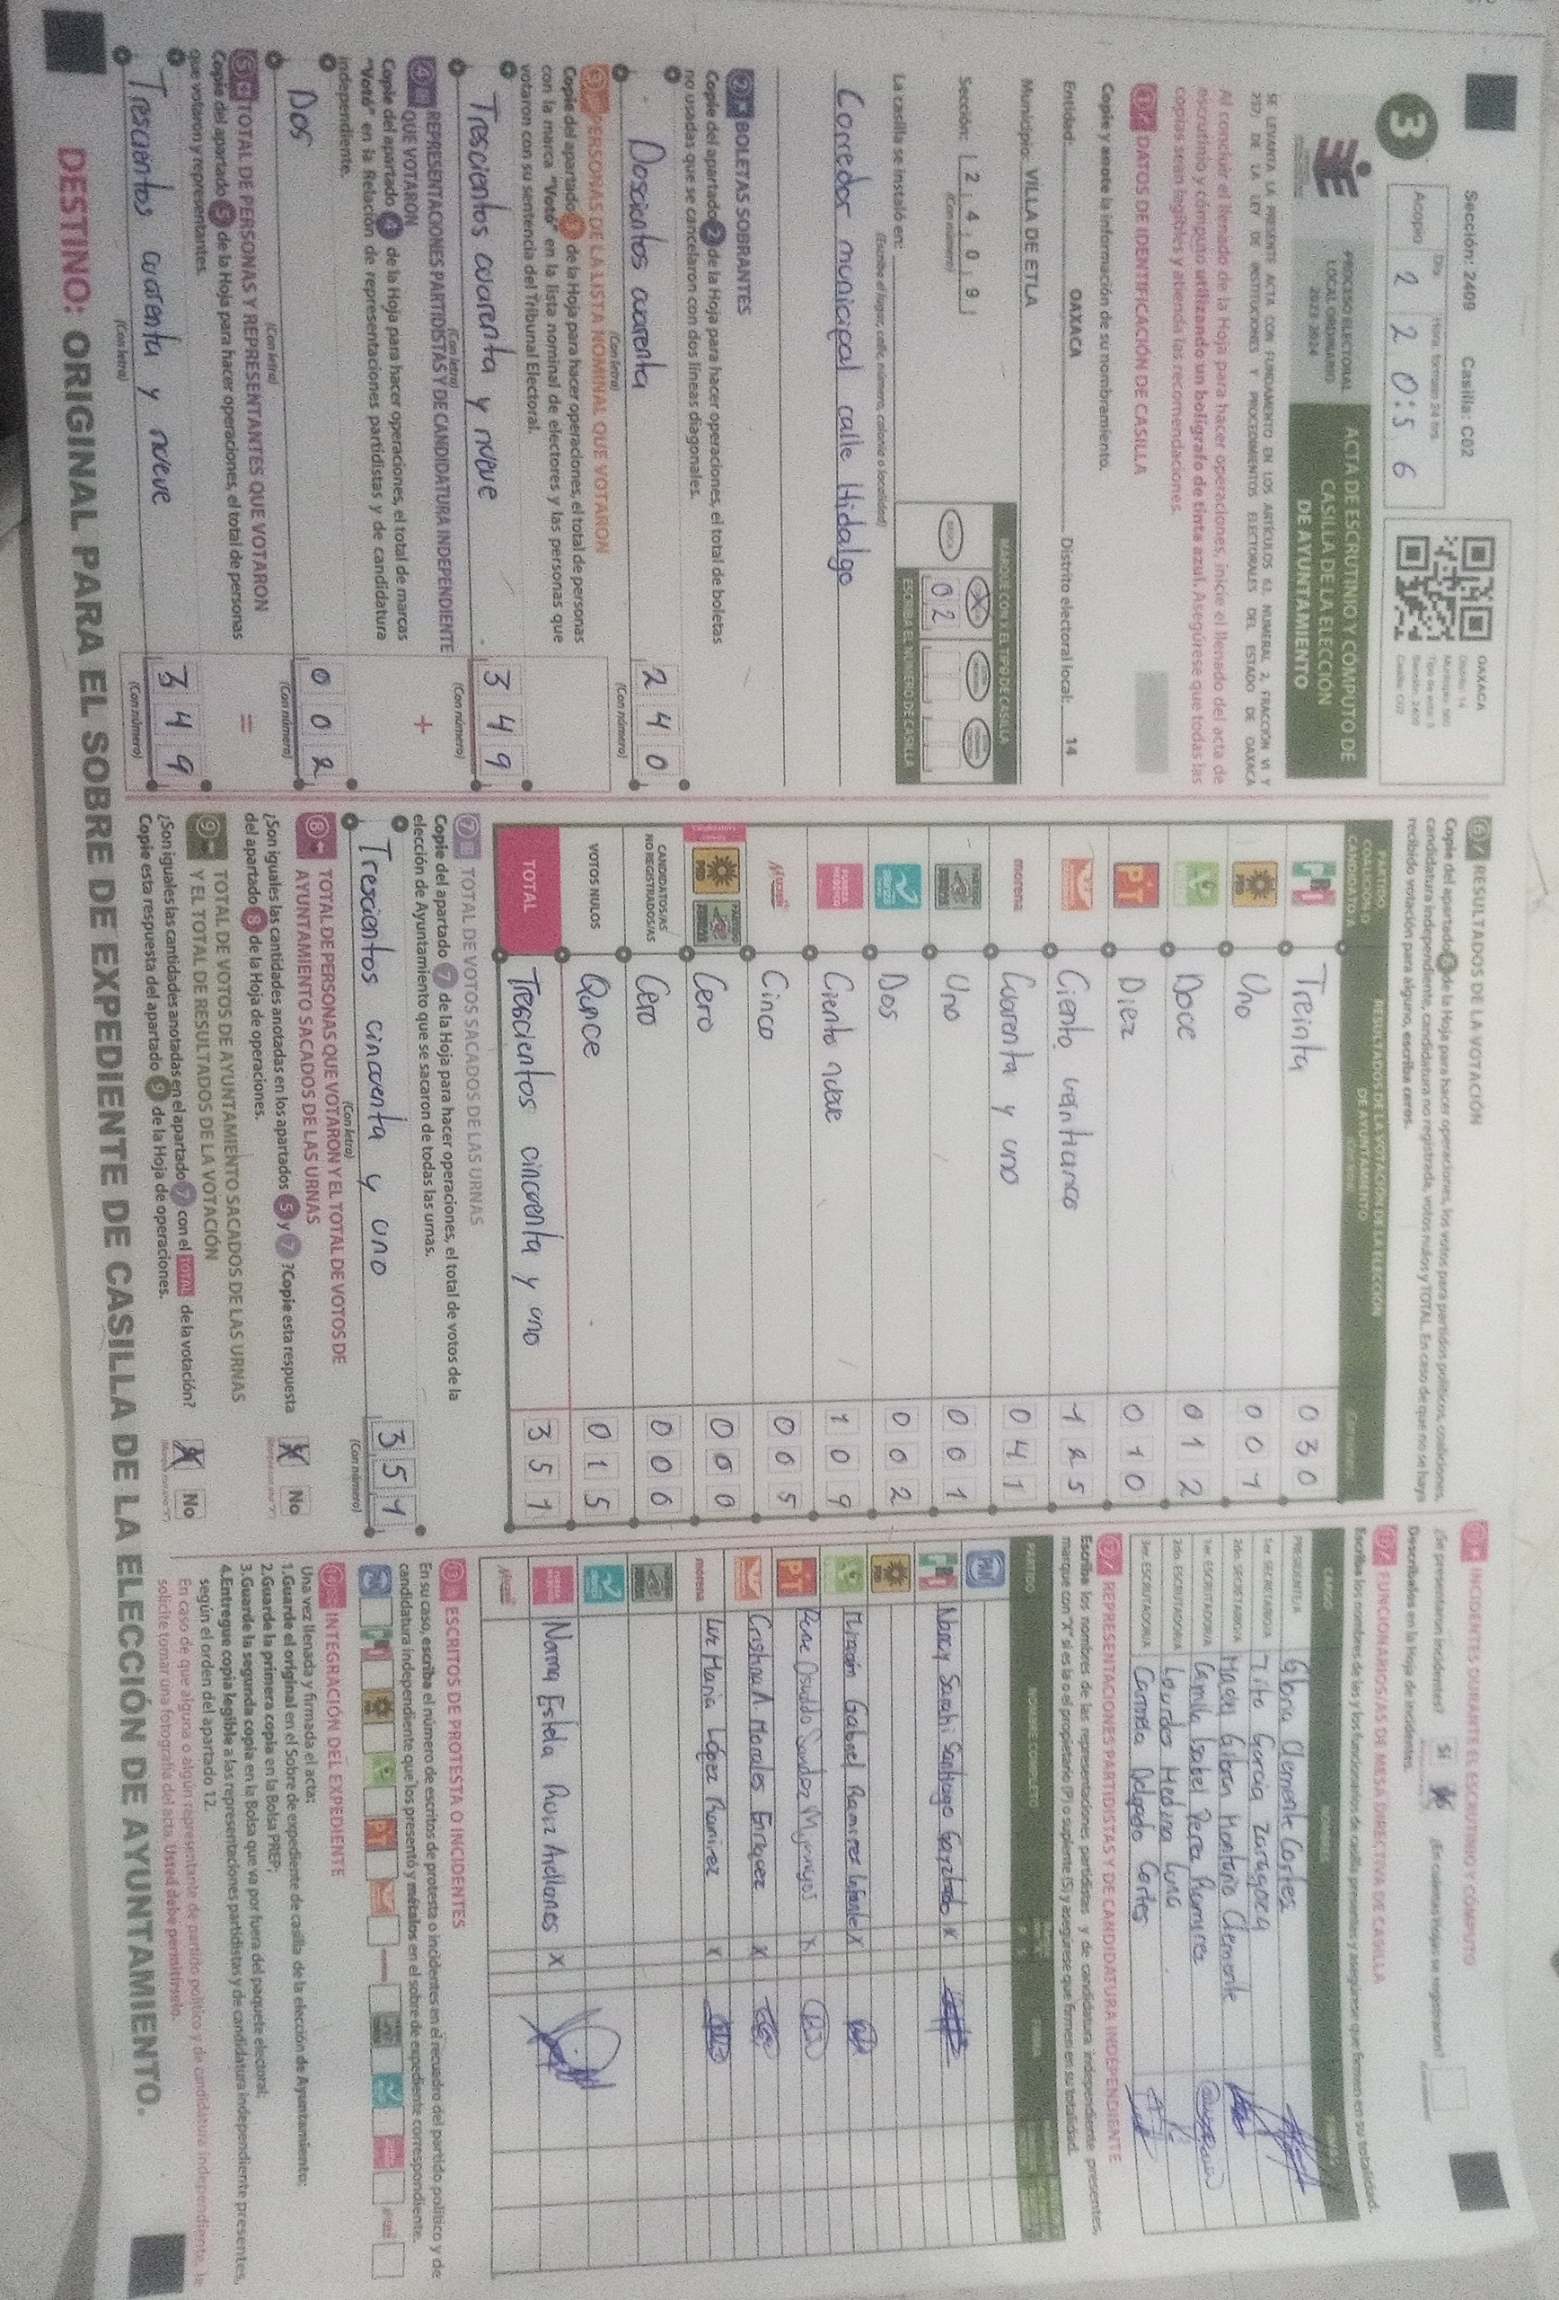 Sección: 2409 Casilla: C02
3
Acopio
Día
Hora formato 24 hrs
2 20:56
OAXACA
Distrito: 14
Sección: 2409
Casilla: C02
PROCESO ELECTORAL
LOCAL ORDINARIO
2023-2024
ACTA DE ESCRUTINIO Y CÓMPUTO DE
CASILLA DE LA ELECCIÓN
DE AYUNTAMIENTO
SE LEVANTA LA PRESENTE ACTA CON FUNDAMENTO EN LOS ARTÍCULOS 63, NUMERAL 2, FRACCIÓN VI Y
237; DE LA LEY DE INSTITUCIONES Y PROCEDIMIENTOS ELECTORALES DEL ESTADO DE OAXACA
Al concluir el llenado de la Hoja para hacer operaciones, inicie el llenado del acta de
escrutinio y cómputo utilizando un bolígrafo de tinta azul. Asegúrese que todas las
copias sean legibles y atienda las recomendaciones.
1 DATOS DE IDENTIFICACIÓN DE CASILLA
Copie y anote la información de su nombramiento.
Entidad: OAXACA Distrito electoral local: 14
Municipio: VILLA DE ETLA
Sección: 2 4 0 9
(Con número)
MARQUE CON X EL TIPO DE CASILLA
X
0 2
ESCRIBA EL NÚMERO DE CASILLA
La casilla se instaló en:
(Escriba el lugar, calle, número, colonia o localidad)
Corredor municipal calle Hidalgo
2 BOLETAS SOBRANTES
Copie del apartado 2 de la Hoja para hacer operaciones, el total de boletas
no usadas que se cancelaron con dos líneas diagonales.
Doscientos cuarenta 2 4 0
(Con letra) (Con número)
3 PERSONAS DE LA LISTA NOMINAL QUE VOTARON
Copie del apartado 3 de la Hoja para hacer operaciones, el total de personas
con la marca "Votó" en la lista nominal de electores y las personas que
votaron con su sentencia del Tribunal Electoral.
Trescientos cuarenta y nueve 3 4 9
(Con letra) (Con número)
4 REPRESENTACIONES PARTIDISTAS Y DE CANDIDATURA INDEPENDIENTE
QUE VOTARON +
Copie del apartado 4 de la Hoja para hacer operaciones, el total de marcas
"Votó" en la Relación de representaciones partidistas y de candidatura
independiente.
Dos 0 0 2
(Con letra) (Con número)
5 TOTAL DE PERSONAS Y REPRESENTANTES QUE VOTARON =
Copie del apartado 5 de la Hoja para hacer operaciones, el total de personas
que votaron y representantes.
Trescientos cuarenta y nueve 3 4 9
(Con letra) (Con número)
6 RESULTADOS DE LA VOTACIÓN
Copie del apartado 6 de la Hoja para hacer operaciones, los votos para partidos políticos, coaliciones,
candidatura independiente, candidatura no registrada, votos nulos y TOTAL. En caso de que no se haya
recibido votación para alguno, escriba ceros.
PARTIDO
COALICIÓN O
CANDIDATO/A
RESULTADOS DE LA VOTACIÓN DE LA ELECCIÓN
DE AYUNTAMIENTO
PRI Treinta 0 3 0
PRD Uno 0 0 1
Doce 0 1 2
PT Diez 0 1 0
Ciento veinticinco 1 2 5
morena Cuarenta y uno 0 4 1
Uno 0 0 1
Dos 0 0 2
FUERZA MÉXICO Ciento nueve 1 0 9
Mujer Cinco 0 0 5
PRD Cero 0 0 0
CANDIDATOS/AS
NO REGISTRADOS/AS Cero 0 0 0
VOTOS NULOS Quince 0 1 5
TOTAL Trescientos cincuenta y uno 3 5 1
7 TOTAL DE VOTOS SACADOS DE LAS URNAS
Copie del apartado 7 de la Hoja para hacer operaciones, el total de votos de la
elección de Ayuntamiento que se sacaron de todas las urnas.
Trescientos cincuenta y uno 3 5 1
(Con letra) (Con número)
8 TOTAL DE PERSONAS QUE VOTARON Y EL TOTAL DE VOTOS DE
AYUNTAMIENTO SACADOS DE LAS URNAS
¿Son iguales las cantidades anotadas en los apartados 5 y 7 ? Copie esta respuesta
del apartado 8 de la Hoja de operaciones. No
9 TOTAL DE VOTOS DE AYUNTAMIENTO SACADOS DE LAS URNAS
Y EL TOTAL DE RESULTADOS DE LA VOTACIÓN
¿Son iguales las cantidades anotadas en el apartado 7 con el TOTAL de la votación?
Copie esta respuesta del apartado 9 de la Hoja de operaciones. No
10 INCIDENTES DURANTE EL ESCRUTINIO Y CÓMPUTO
¿Se presentaron incidentes? Sí ¿En cuántas Hojas se registraron?
Descríbalos en la Hoja de Incidentes.
11 FUNCIONARIOS/AS DE MESA DIRECTIVA DE CASILLA
Escriba los nombres de las y los funcionarios de casilla presentes y asegúrese que firmen en su totalidad.
CARGO NOMBRES FIRMAS
PRESIDENTE/A Gloria Clemente Cortes
1er. SECRETARIO/A Tito Garcia Zaragoza
2do. SECRETARIO/A Gibran Montaño Clemente
1er. ESCRUTADOR/A Camila Isabel Perez Ramirez
2do. ESCRUTADOR/A Lourdes Medina Luna
3er. ESCRUTADOR/A Carmela Delgado Cortes
12 REPRESENTACIONES PARTIDISTAS Y DE CANDIDATURA INDEPENDIENTE
Escriba los nombres de las representaciones partidistas y de candidatura independiente presentes,
marque con "X" si es la o el propietario (P) o suplente (S) y asegúrese que firmen en su totalidad.
PARTIDO NOMBRE COMPLETO
PAN
PRI Nancy Sarahi Santiago x
PRD
Efrain Gabriel Ramirez x
PT Rene Osvaldo Sanchez x
Cristina A. Morales Enriquez x
morena Luz Maria López Ramirez x
FUERZA MÉXICO Norma Estela Ruiz Arellanes x
Mujer
13 ESCRITOS DE PROTESTA O INCIDENTES
En su caso, escriba el número de escritos de protesta o incidentes en el recuadro del partido político y de
candidatura independiente que los presentó y métalos en el sobre de expediente correspondiente.
14 INTEGRACIÓN DEL EXPEDIENTE
Una vez llenada y firmada el acta:
1.Guarde el original en el Sobre de expediente de casilla de la elección de Ayuntamiento;
2.Guarde la primera copia en la Bolsa PREP;
3.Guarde la segunda copia en la Bolsa que va por fuera del paquete electoral;
4.Entregue copia legible a las representaciones partidistas y de candidatura independiente presentes,
según el orden del apartado 12.
En caso de que alguna o algún representante de partido político y de candidatura independiente, le
solicite tomar una fotografía del acta. Usted debe permitírselo.
DESTINO: ORIGINAL PARA EL SOBRE DE EXPEDIENTE DE CASILLA DE LA ELECCIÓN DE AYUNTAMIENTO.